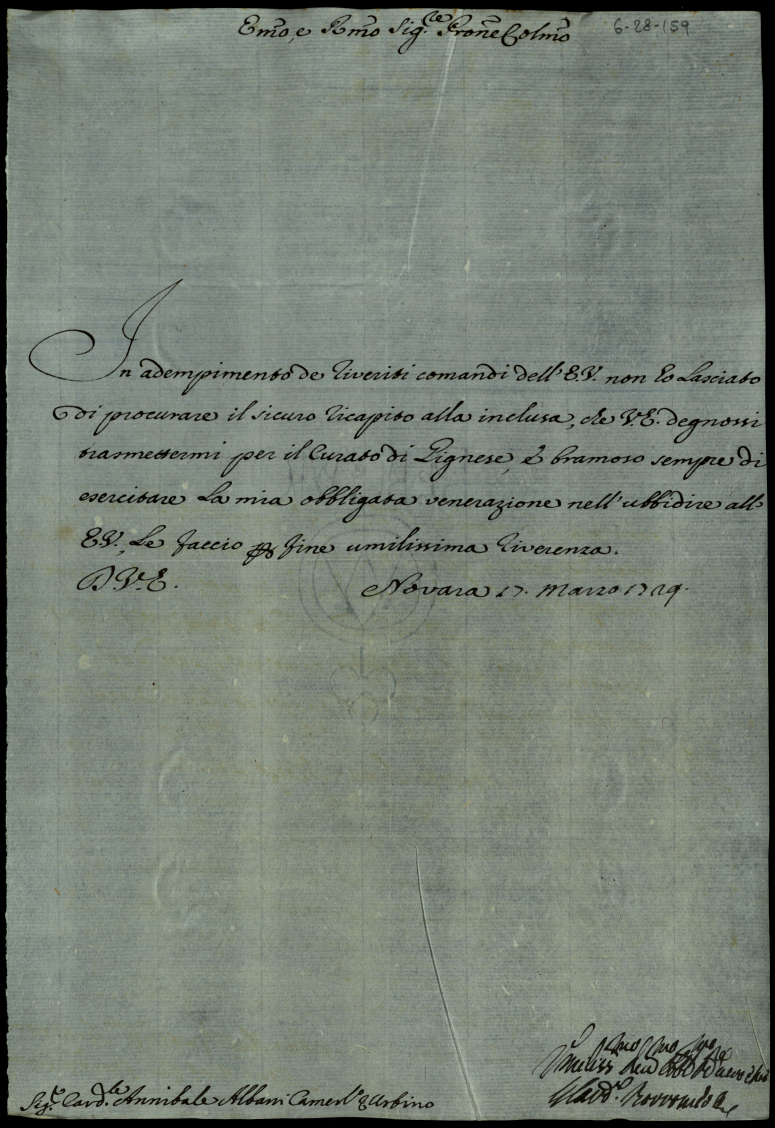 Emo, e Rmo Sig.re Prone Colmo
6-28-159
In adempimento de riveriti comandi dell'E.V. non ho Lasciato
di procurare il sicuro ricapito alla inclusa, che V.E. degnossi
trasmettermi per il Curato di Pignese, e bramoso sempre di
esercitare La mia obbligata venerazione nell'ubbidire all'
E.V., Le faccio per fine umilissima riverenza.
D.V.E. Novara 17. Marzo 1729.
Umiliss.mo Dev.mo Obb.mo
Borromeo
Sig.r Card.le Annibale Albani Camerl.o Urbino